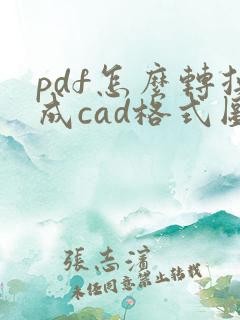 pdf怎麽轉
成cad格式
張志濱
未經同意禁止轉載